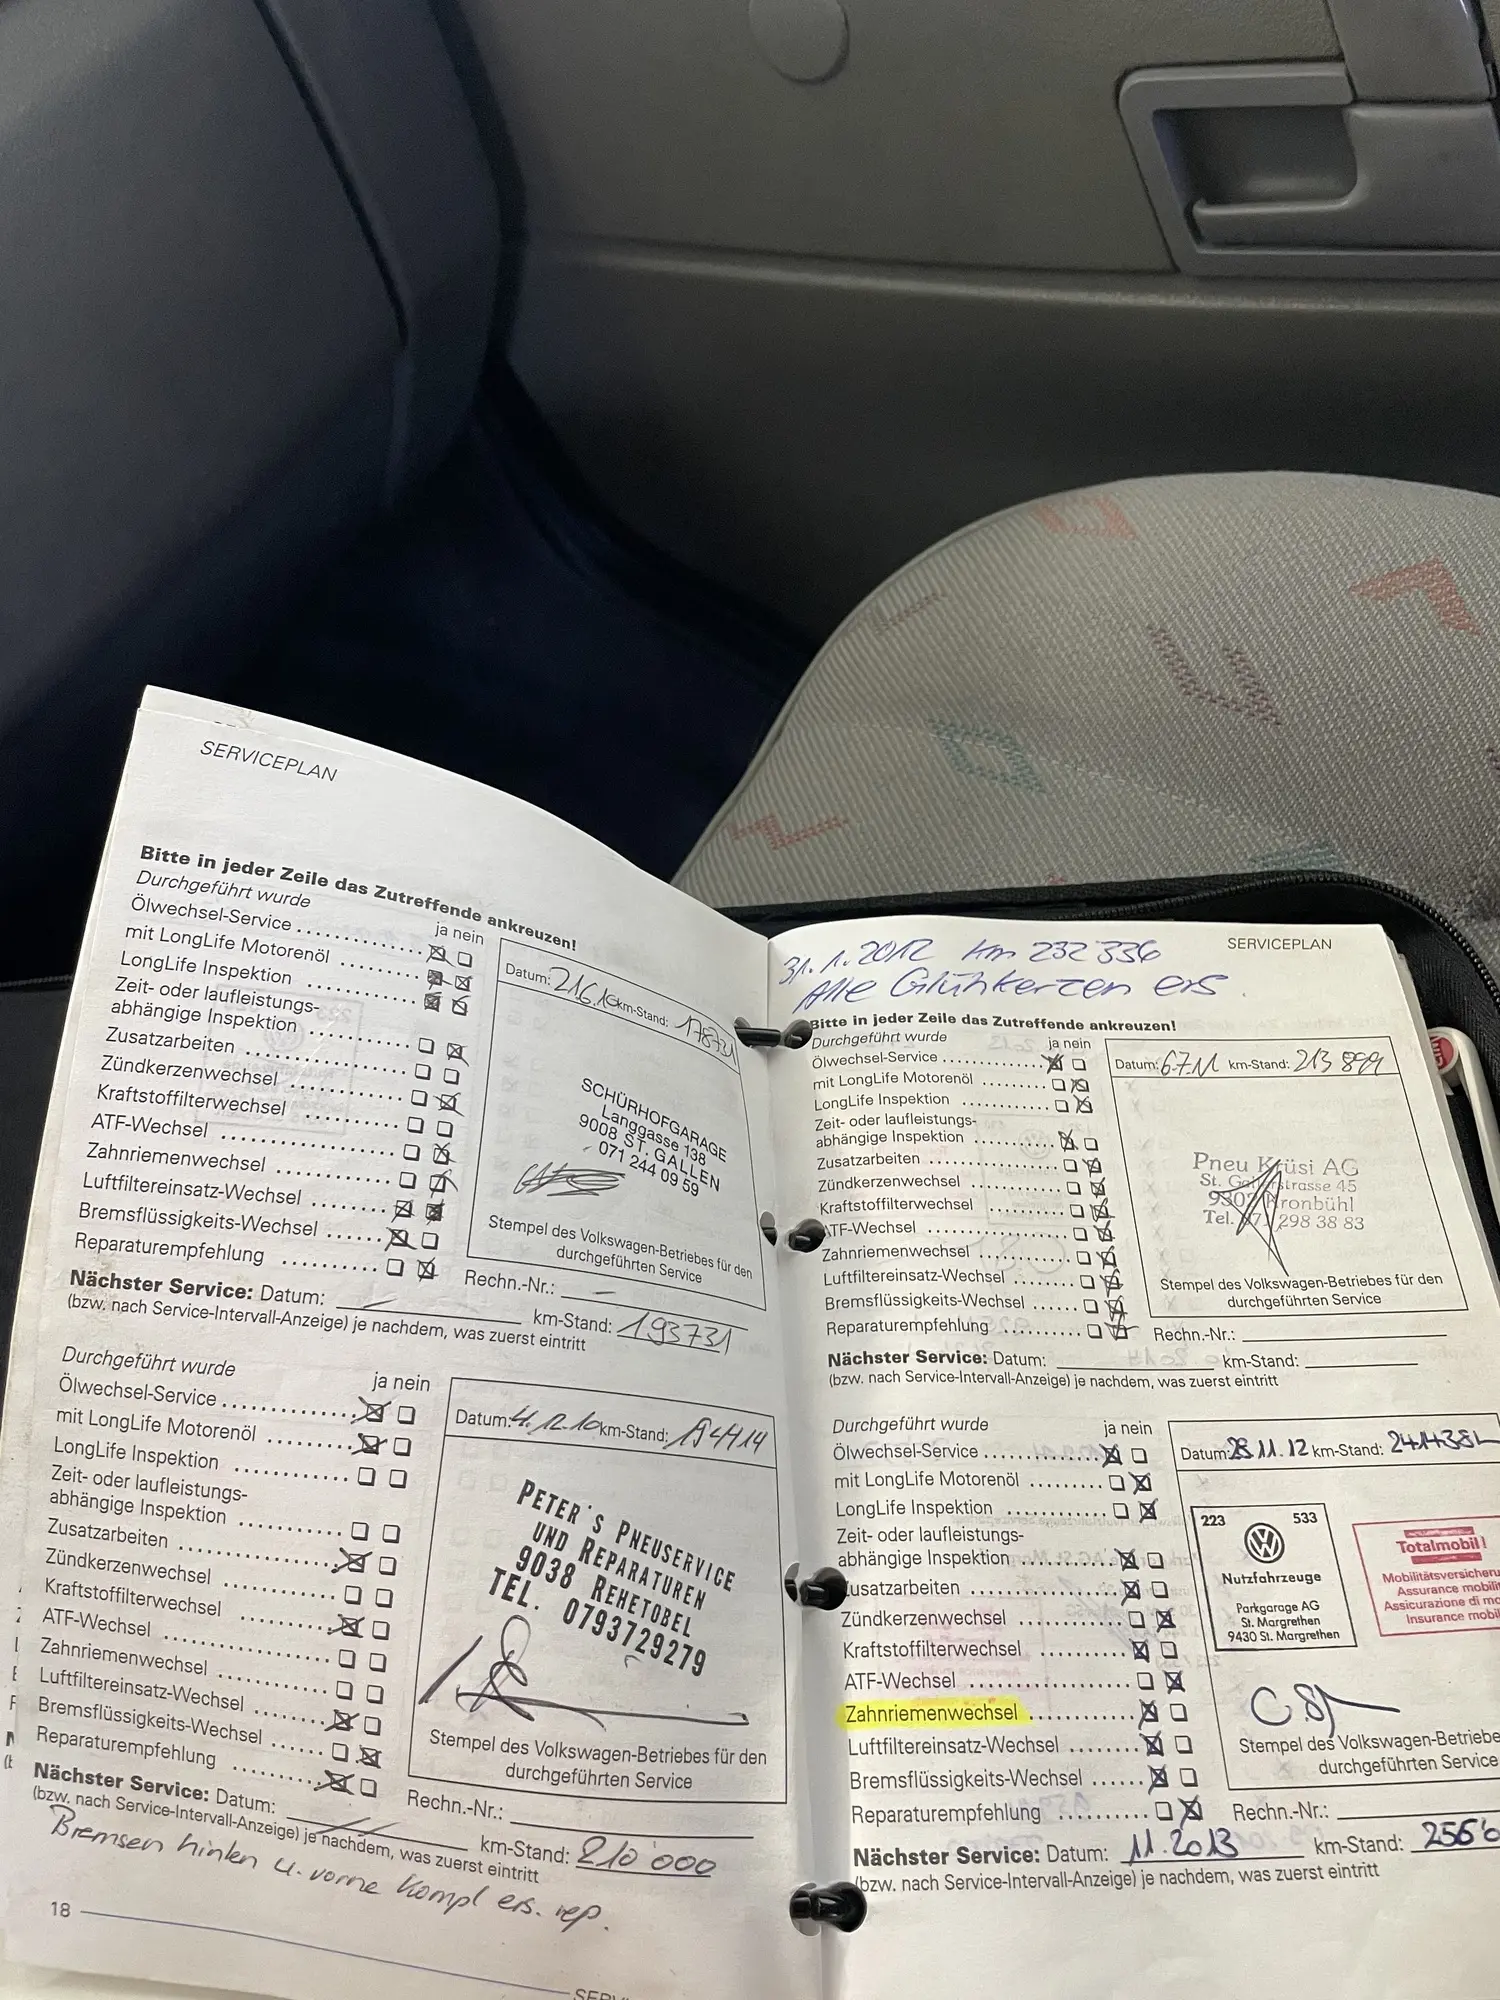 SERVICEPLAN
Bitte in jeder Zeile das Zutreffende ankreuzen!
Durchgeführt wurde
ja nein
Ölwechsel-Service
mit LongLife Motorenöl
LongLife Inspektion
Zeit- oder laufleistungs-
abhängige Inspektion
Zusatzarbeiten
Zündkerzenwechsel
Kraftstoffilterwechsel
ATF-Wechsel
Zahnriemenwechsel
Luftfiltereinsatz-Wechsel
Bremsflüssigkeits-Wechsel
Reparaturempfehlung
Datum: 21.6.10 km-Stand: 178731
SCHÜRHOFGARAGE
Langgasse 138
9008 ST. GALLEN
071 244 09 59
Stempel des Volkswagen-Betriebes für den
durchgeführten Service
Rechn.-Nr.: –
Nächster Service: Datum: – km-Stand: 193731
(bzw. nach Service-Intervall-Anzeige) je nachdem, was zuerst eintritt
Durchgeführt wurde
ja nein
Ölwechsel-Service
mit LongLife Motorenöl
LongLife Inspektion
Zeit- oder laufleistungs-
abhängige Inspektion
Zusatzarbeiten
Zündkerzenwechsel
Kraftstoffilterwechsel
ATF-Wechsel
Zahnriemenwechsel
Luftfiltereinsatz-Wechsel
Bremsflüssigkeits-Wechsel
Reparaturempfehlung
Datum: 4.12.10 km-Stand:
PETER'S PNEUSERVICE
UND REPARATUREN
9038 REHETOBEL
TEL. 0793729279
Stempel des Volkswagen-Betriebes für den
durchgeführten Service
Rechn.-Nr.:
Nächster Service: Datum: km-Stand: 210'000
(bzw. nach Service-Intervall-Anzeige) je nachdem, was zuerst eintritt
Bremsen hinten u. vorne kompl ers. rep.
18
SERV
SERVICEPLAN
31.1.2012 km 232'336
Alle Glühkerzen ers.
Bitte in jeder Zeile das Zutreffende ankreuzen!
Durchgeführt wurde
ja nein
Ölwechsel-Service
mit LongLife Motorenöl
LongLife Inspektion
Zeit- oder laufleistungs-
abhängige Inspektion
Zusatzarbeiten
Zündkerzenwechsel
Kraftstoffilterwechsel
ATF-Wechsel
Zahnriemenwechsel
Luftfiltereinsatz-Wechsel
Bremsflüssigkeits-Wechsel
Reparaturempfehlung
Datum: 6.7.11 km-Stand: 213'899
Pneu Krüsi AG
St. Gallerstrasse 45
9302 Kronbühl
Tel. 071 298 38 83
Stempel des Volkswagen-Betriebes für den
durchgeführten Service
Rechn.-Nr.:
Nächster Service: Datum: km-Stand:
(bzw. nach Service-Intervall-Anzeige) je nachdem, was zuerst eintritt
Durchgeführt wurde
ja nein
Ölwechsel-Service
mit LongLife Motorenöl
LongLife Inspektion
Zeit- oder laufleistungs-
abhängige Inspektion
Zusatzarbeiten
Zündkerzenwechsel
Kraftstoffilterwechsel
ATF-Wechsel
Zahnriemenwechsel
Luftfiltereinsatz-Wechsel
Bremsflüssigkeits-Wechsel
Reparaturempfehlung
Datum: 28.11.12 km-Stand: 241438
223 533
Nutzfahrzeuge
Parkgarage AG
St. Margrethen
9430 St. Margrethen
Totalmobil!
Mobilitätsversicheru
Assurance mobili
Assicurazione di mo
Insurance mobil
Stempel des Volkswagen-Betriebe
durchgeführten Service
Rechn.-Nr.:
Nächster Service: Datum: 11.2013 km-Stand: 256'0
(bzw. nach Service-Intervall-Anzeige) je nachdem, was zuerst eintritt